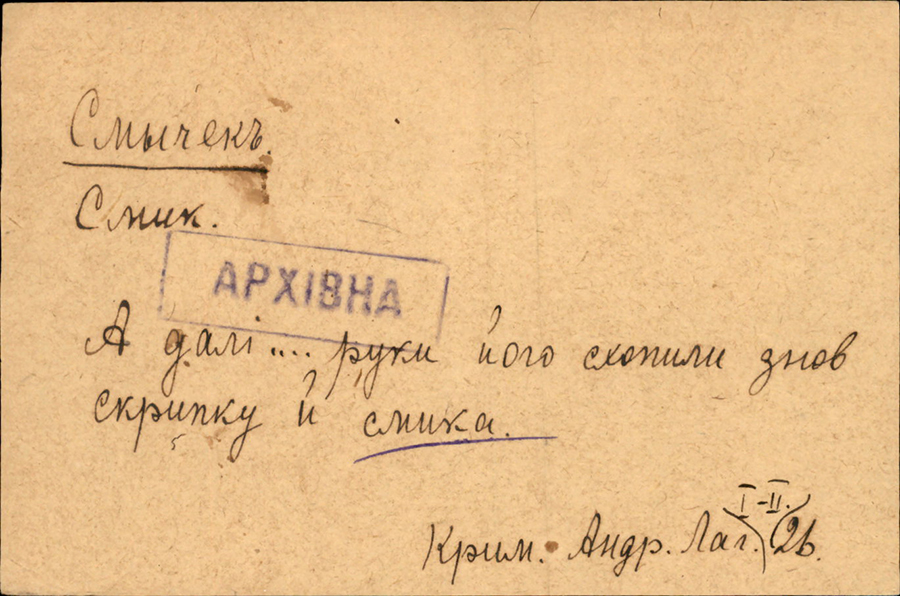 Смычекъ.
Смик.
АРХІВНА
А далі.... руки його схопили знов
скрипку й смика.
I-II.
Крим. Андр. Лаг. 26.